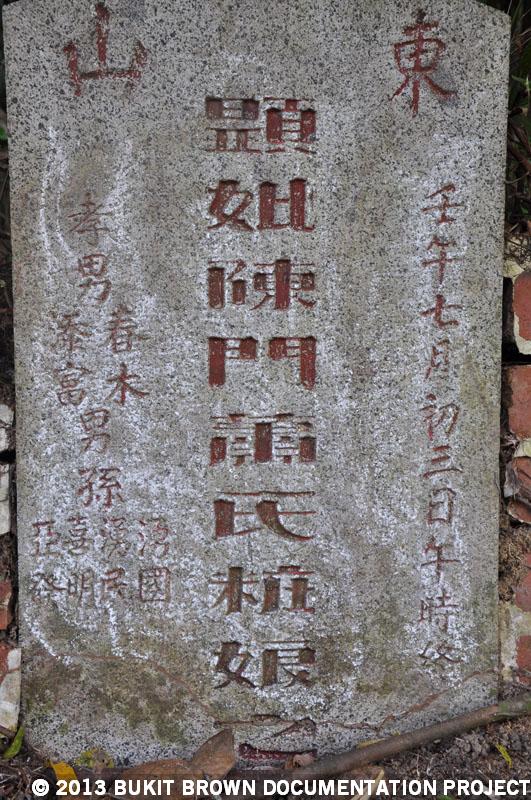 東山
壬午七月初三日午時終
顯妣陳門蕭氏杭娘之
孝男
春木
富
男孫
湧國
湧民
喜明
亞發
© 2013 BUKIT BROWN DOCUMENTATION PROJECT